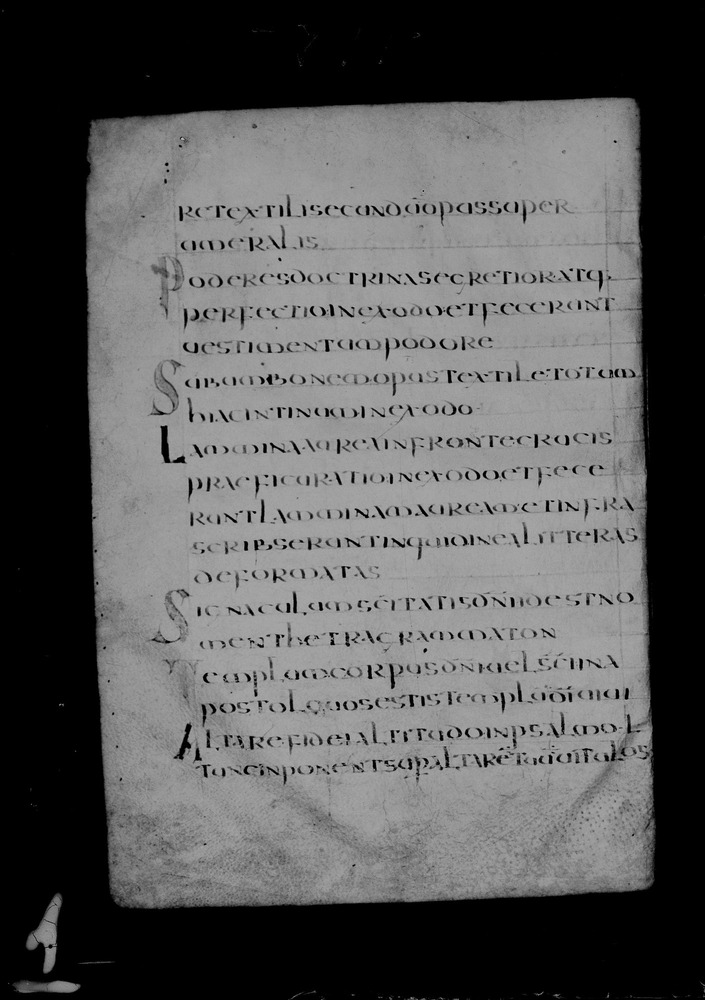 RETEXTILISECUNDUOPUSSUPER
UMERALIS
PODERESDOCTRINASECRETIORATQ·
PERFECTIOINEXODO·ETFECERUNT
UESTIMENTUMPODORE
SUBUMBONEMOPUSTEXTILETOTUM
HIACINTINUMINEXODO·
LAMMINAAUREAINFRONTECRUCIS
PRAEFIGURATIOINEXODO,ETFECE
RUNTLAMMINAMAUREAMETINFRA
SCRIBSERUNTINQUIOINEALITTERAS
DEFORMATAS
SIGNACULUMSCITATISDN̄IIDESTNO
MENTHETRAGRAMMATON
TEMPLUMCORPUSDN̄IUELSCIINA
POSTOLQUOSESTISTEMPLUDĪUIUI
ALTAREFIDEIALTITUDOINPSALMO·L
TUNCINPONENTSUPALTARĒTUUUITULOS